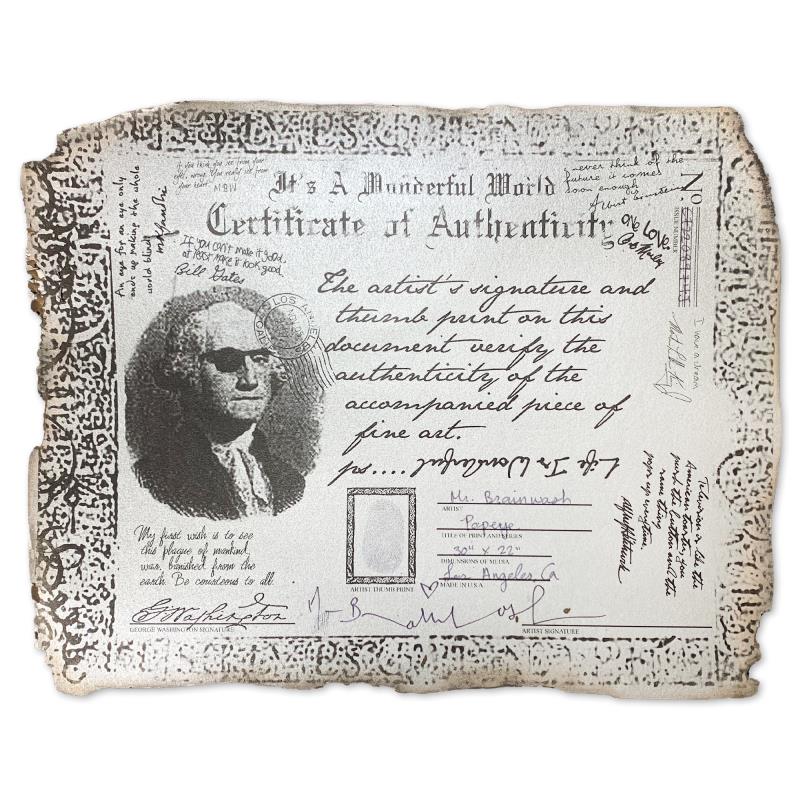 It's A Wonderful World
Certificate of Authenticity
If you think you see from your
eyes, wrong. You really see from
your heart. MBW
An eye for an eye only
ends up making the whole
world blind.
If you can't make it good,
at least make it look good.
Bill Gates
...never think of the
future it comes
soon enough
Albert Einstein
No
ISSUE NUMBER
One Love.
Bob Marley
I have a dream
LOS ANGELES
The artist's signature and
thumb print on this
document verify the
authenticity of the
accompanied piece of
fine art.
ps.....Life Is Wonderful
Television is like the
American toaster, you
push the button and the
same thing
pops up everytime.
My first wish is to see
this plague of mankind,
war, banished from the
earth. Be courteous to all.
G Washington
GEORGE WASHINGTON SIGNATURE
ARTIST THUMB PRINT
Mr. Brainwash
ARTIST
Papeye
TITLE OF PRINT AND SERIES
30" x 22"
DIMENSIONS OF MEDIA
Los Angeles, Ca
MADE IN U.S.A.
ARTIST SIGNATURE